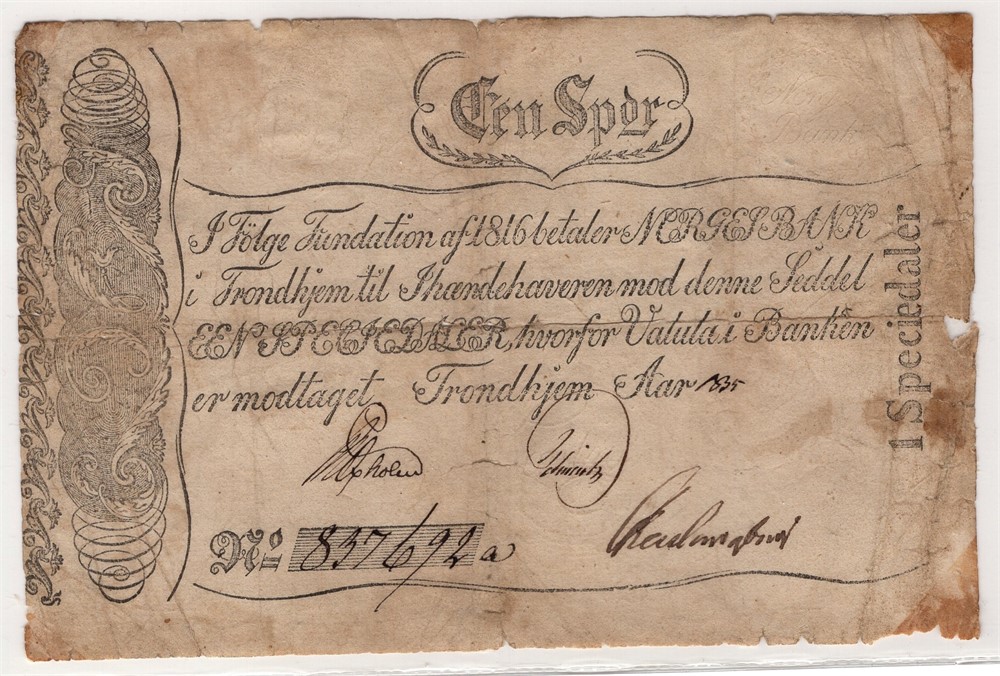 Een Spdr
I Fölge Fundation af 1816 betaler NORGES BANK
i Trondhjem til Ihændehaveren mod denne Seddel
EEN SPECIEDALER, hvorfor Valuta i Banken
er modtaget Trondhjem Aar 1835
No 837692 a
1 Speciedaler